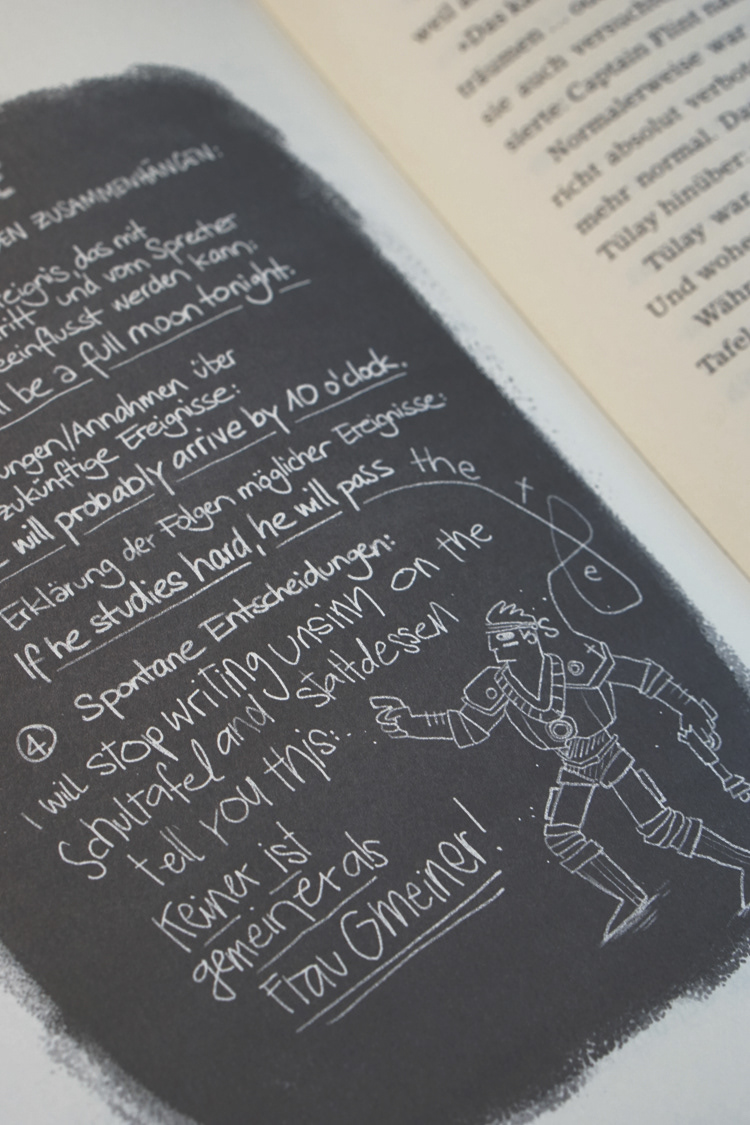 ZUSAMMENHÄNGEN:
das mit
und vom Sprecher
werden kann:
be a full moon tonight.
ungen/Annahmen über
zukünftige Ereignisse:
will probably arrive by 10 o'clock.
Erklärung der Folgen möglicher Ereignisse:
If he studies hard, he will pass the
t
e
④ Spontane Entscheidungen:
I will stop writing unsinn on the
Schultafel and stattdessen
tell you this:
Keiner ist
gemeiner als
Frau Gmeiner!
weil
»Das
träumen
sie auch
sierte Captain Flint
Normalerweise war
richt absolut
mehr normal.
Tülay hinüber.
Tülay war
Und
Wäh
Tafel